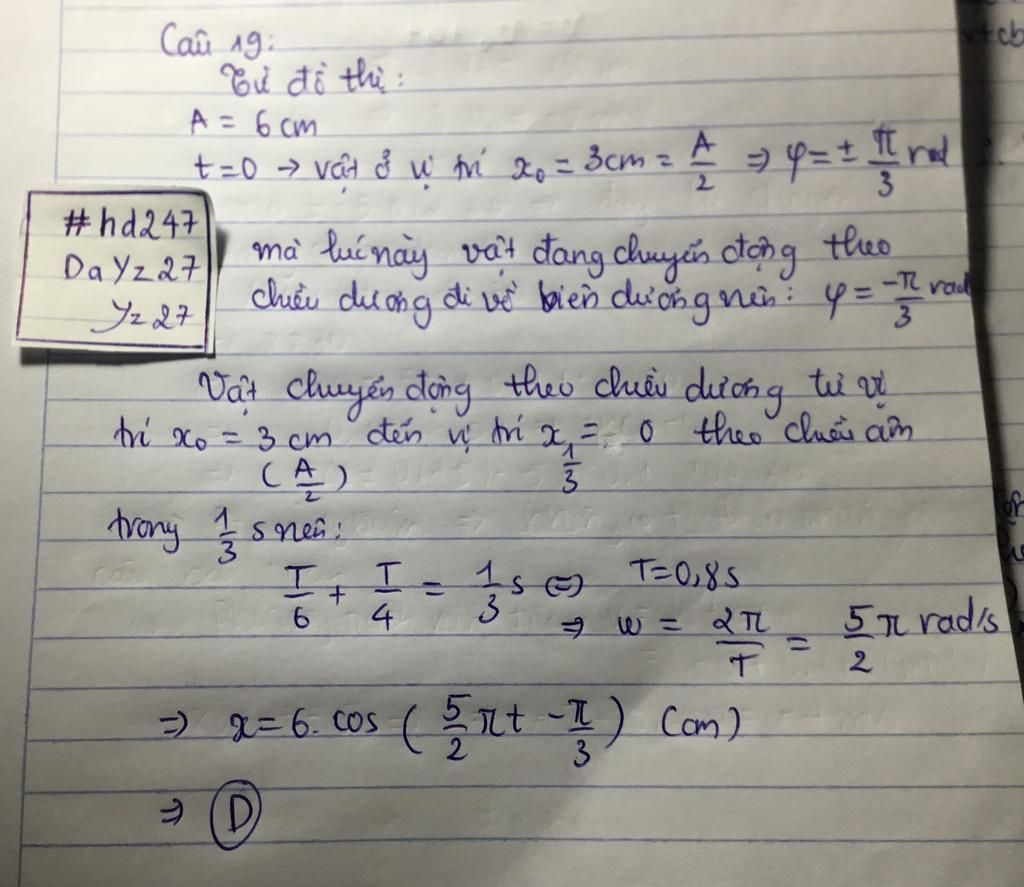 Câu 19:
Từ đồ thị:
A = 6 cm
t=0 → vật ở vị trí x₀ = 3cm = A/2 ⇒ φ = ± π/3 rad
#hd247
DaYz27
Yz27
mà lúc này vật đang chuyển động theo
chiều dương đi về biên dương nên: φ = -π/3 rad
Vật chuyển động theo chiều dương từ vị
trí x₀ = 3 cm đến vị trí x_{1/3} = 0 theo chiều âm
(A/2)
trong 1/3 s nên:
T/6 + T/4 = 1/3 s ⇔ T=0,8s
⇒ ω = 2π/T = 5/2 π rad/s
⇒ x = 6. cos ( 5/2 πt - π/3 ) (cm)
⇒ D